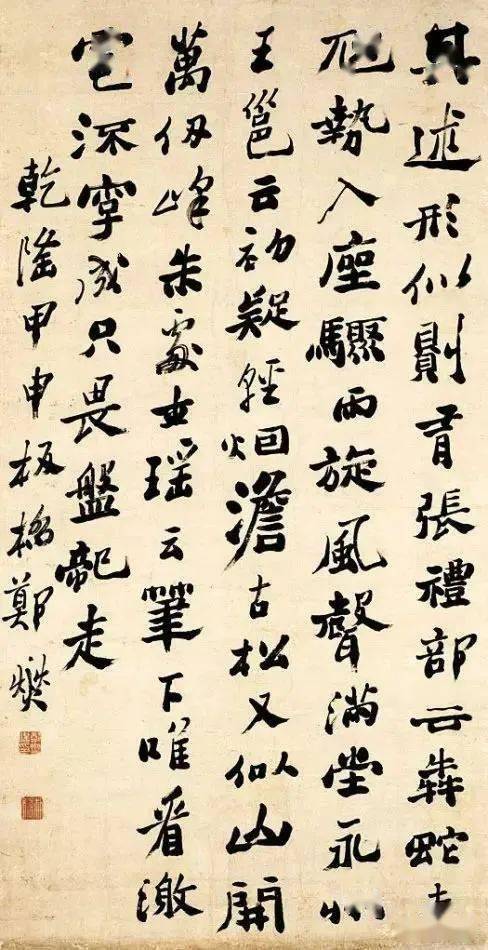 其述形似則有張禮部云犇蛇
虺勢入座驟雨旋風聲滿堂永州
王邕云初疑輕烟澹古松又似山開
萬仞峰朱處士瑤云筆下唯看激
電流字成只畏盤龍走
乾隆甲申板橋鄭燮